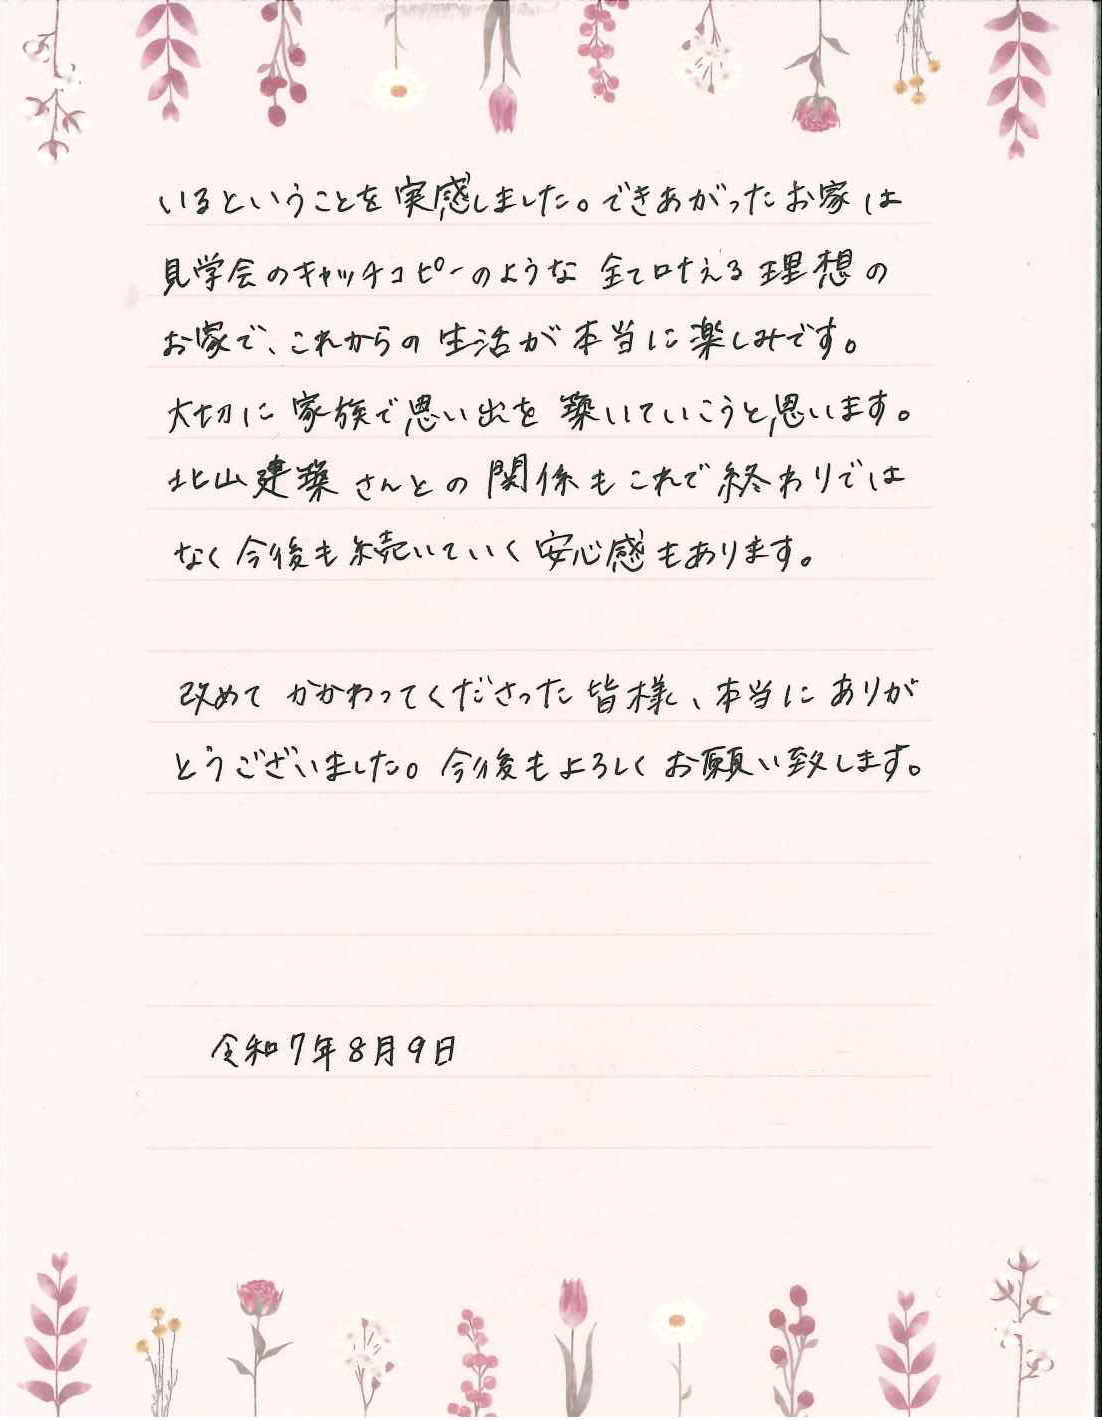 いるということを実感しました。できあがったお家は
見学会のキャッチコピーのような 全て叶える理想の
お家で、これからの生活が本当に楽しみです。
大切に家族で思い出を築いていこうと思います。
北山建築さんとの関係もこれで終わりでは
なく今後も続いていく安心感もあります。
改めてかかわってくださった皆様、本当にありが
とうございました。今後もよろしくお願い致します。
令和7年8月9日